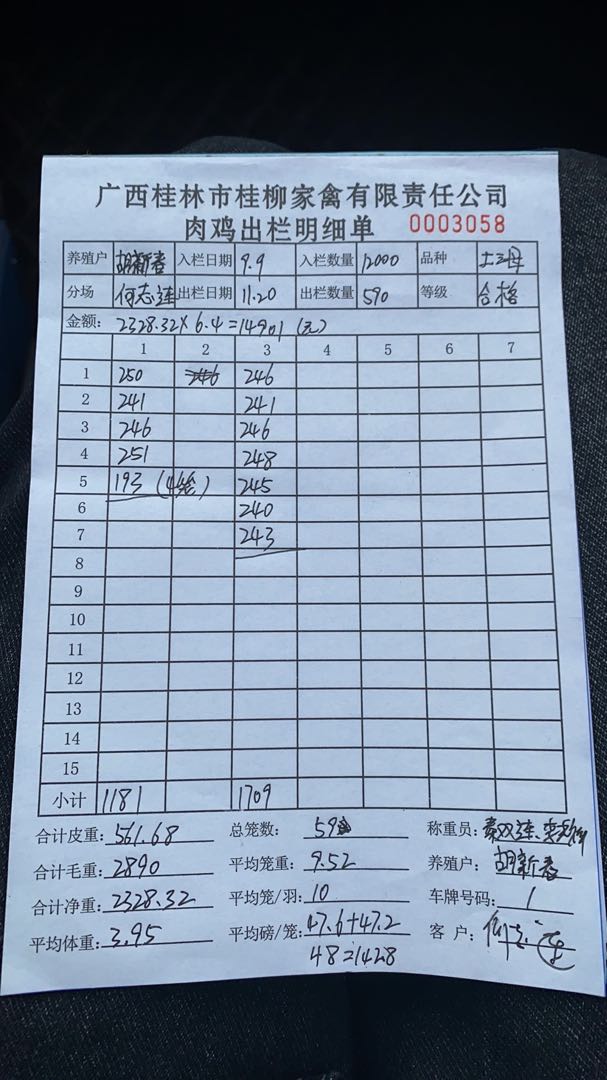 广西桂林市桂柳家禽有限责任公司
肉鸡出栏明细单 0003058
养殖户 胡新春 入栏日期 9.9 入栏数量 12000 品种 土三母
分场 何志连 出栏日期 11.20 出栏数量 590 等级 合格
金额: 2328.32×6.4=14901(元)
1 2 3 4 5 6 7
1 250 246 246
2 241 241
3 246 246
4 251 248
5 193 (4笼) 245
6 240
7 243
8
9
10
11
12
13
14
15
小计 1181 1709
合计皮重: 561.68 总笼数: 59 称重员:
合计毛重: 2890 平均笼重: 9.52 养殖户: 胡新春
合计净重: 2328.32 平均笼/羽: 10 车牌号码: 1
平均体重: 3.95 平均磅/笼: 47.6+47.2 客 户:
48=1428